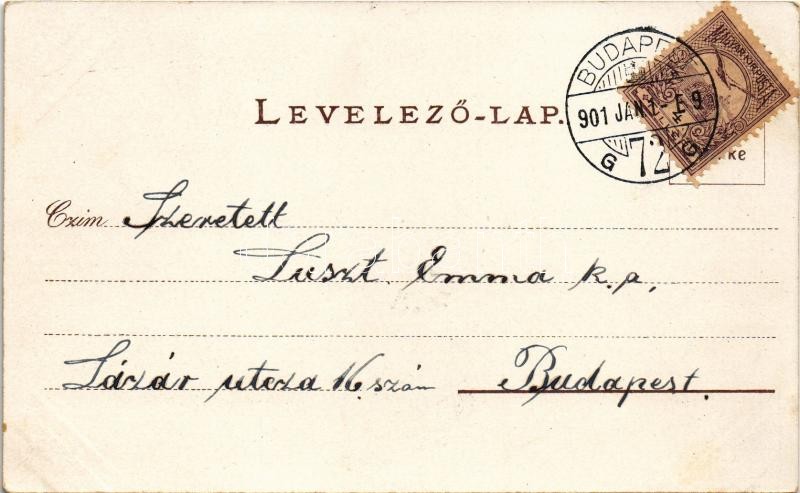 LEVELEZŐ-LAP.
BUDAPEST
901 JAN 1 - É 9
G 72
MAGYAR KIR. POSTA
Czim. Szeretett
Luszt Emma k. a,
Lázár utcza 16 szám Budapest.